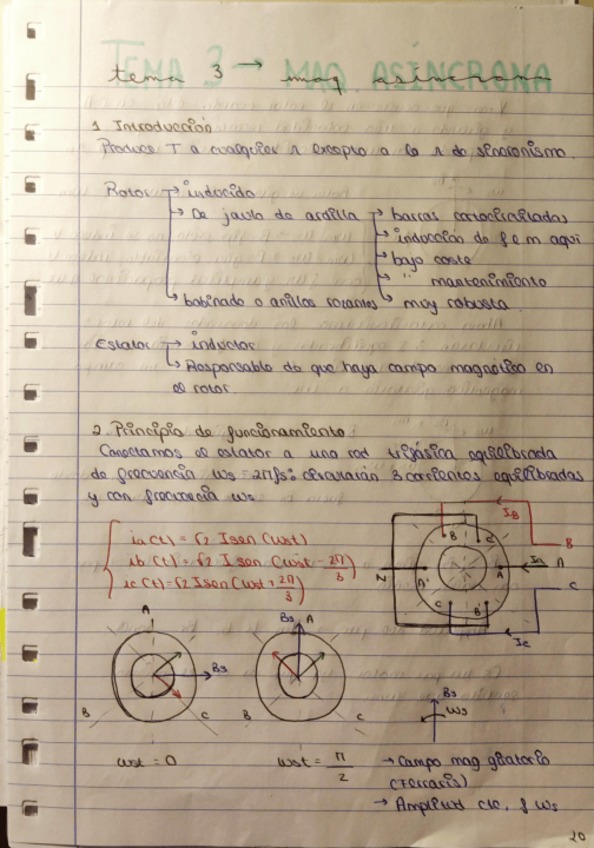 TEMA 3 → MAQ. ASÍNCRONA
tema 3 → maq asíncrona
1 Introducción
Produce T a cualquier n excepto a la n de sincronismo.
Rotor → inducido
→ De jaula de ardilla → barras cortocircuitadas
→ inducción de f e m aqui
→ bajo coste
→ " mantenimiento
→ bobinado o anillos rozantes → muy robusta.
Estator → inductor
→ Responsable de que haya campo magnético en
el rotor.
2. Principio de funcionamiento
Conectamos el estator a una red trifásica equilibrada
de frecuencia ws = 2πfs: circularán 3 corrientes equilibradas
y con frecuencia ws
ia (t) = √2 I sen (wst)
ib (t) = √2 I sen (wst - 2π/3)
ic (t) = √2 I sen (wst + 2π/3)
IB
B
B C'
N A' A IA A
C
C B'
Ic
A
Bs
B C
Bs A
B C
Bs
ws
wst = 0
wst = π/2
→ Campo mag giratorio
(Ferraris)
→ Amplitud cte, f ws
20